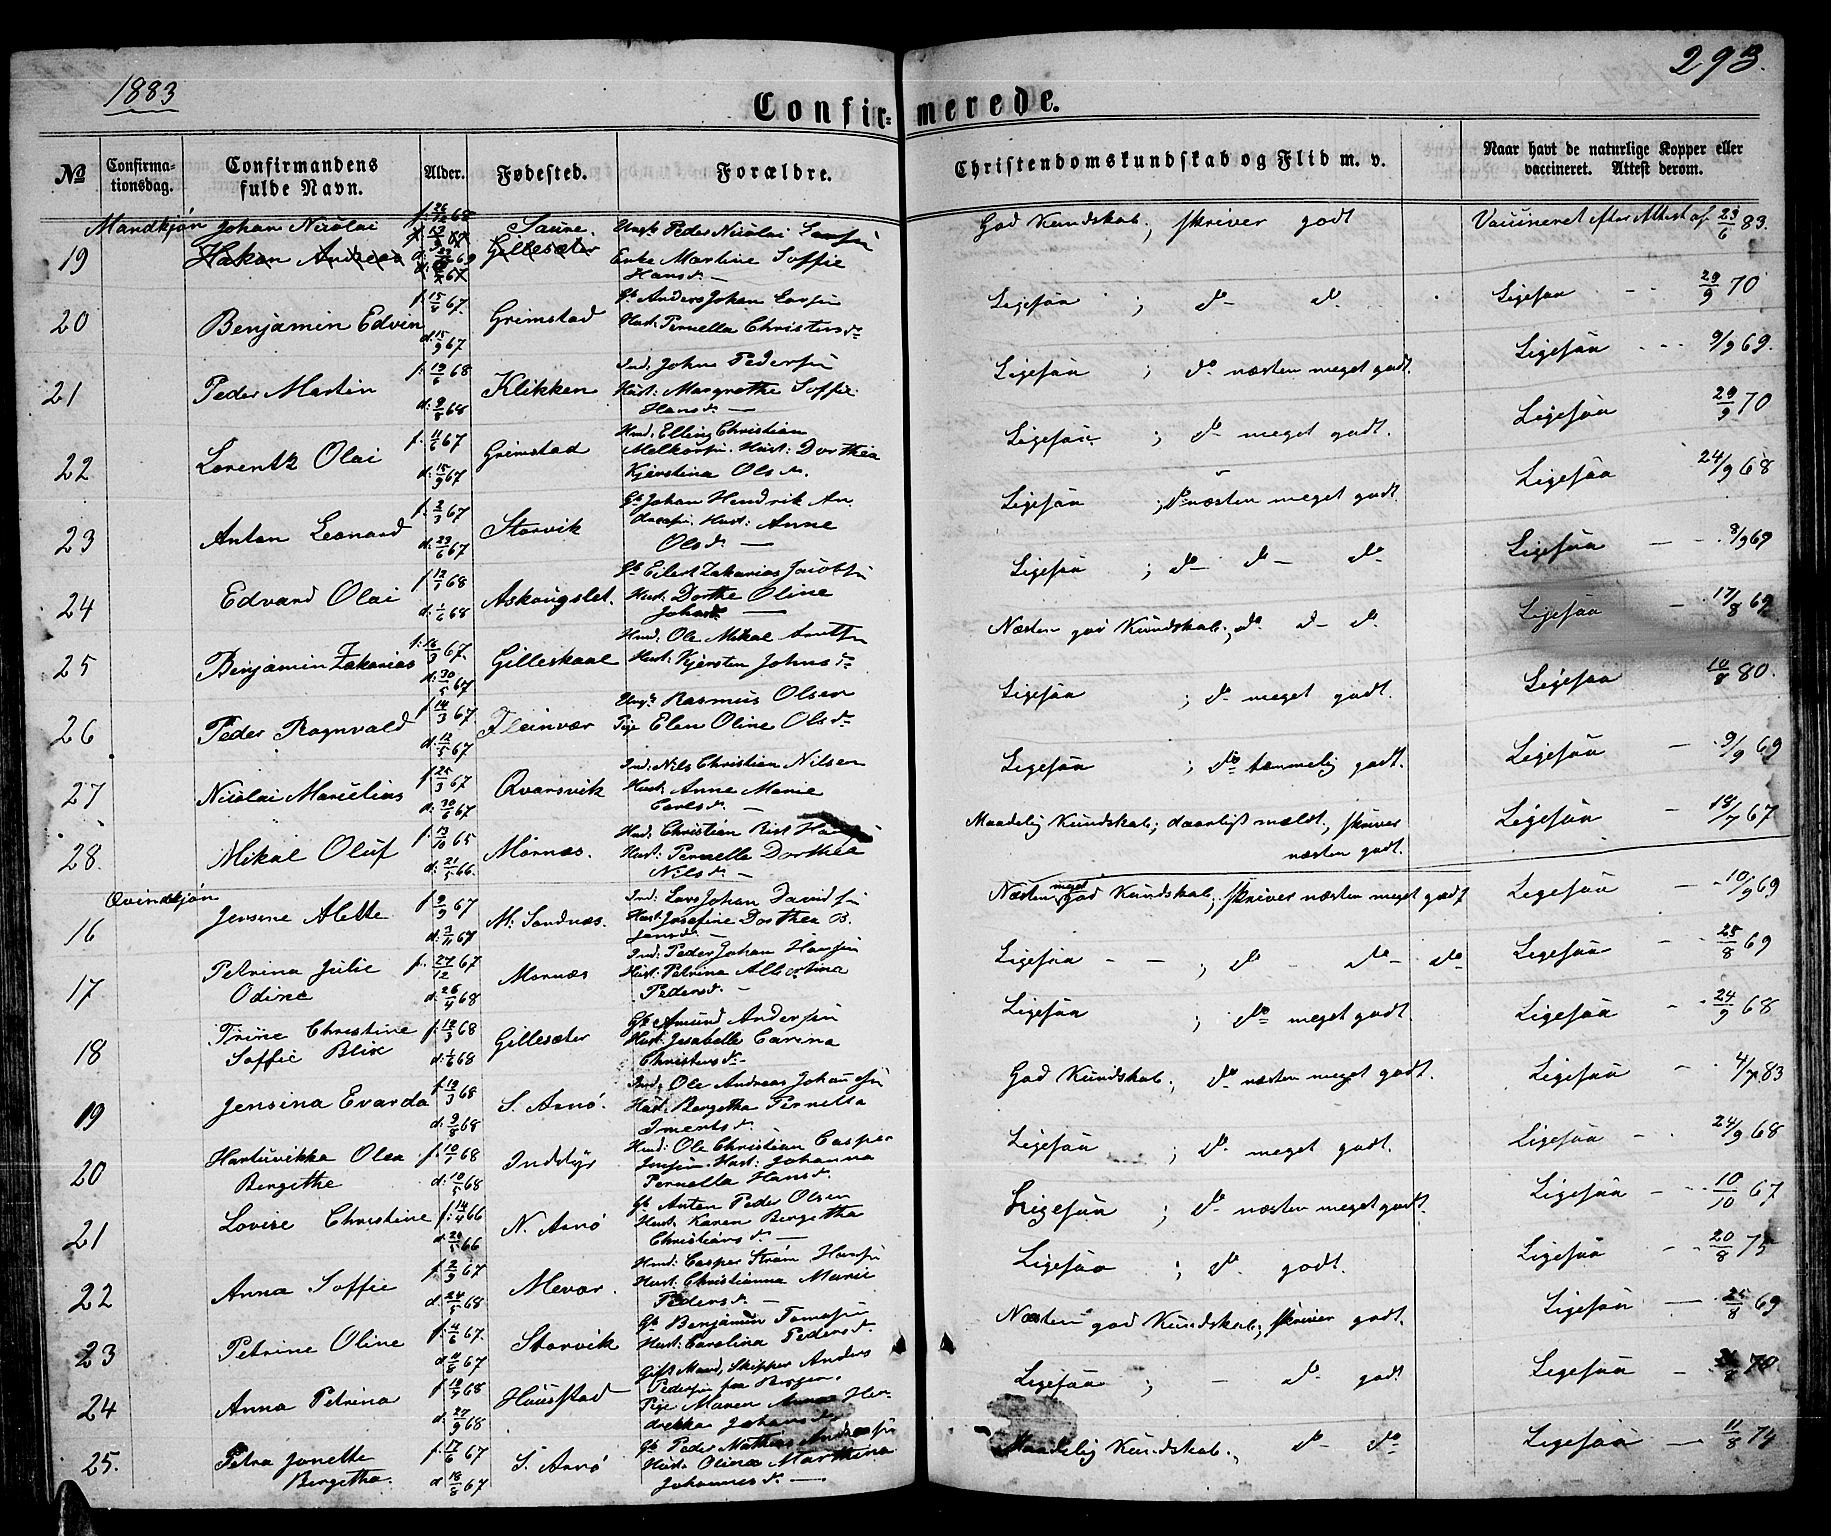 1883
293.
Confirmerede.
№
Confirmationsdag.
Confirmandens fulde Navn.
Alder.
Fødested.
Forældre.
Christendomskundskab og Flid m. v.
Naar havt de naturlige Kopper eller vaccineret. Attest derom.
Mandkjøn
19 Johan Nicolai Saure.
Hakon Andreas Gillesæter
Peder Nicolai
Enke Martine Soffie
Hansd.
God Kundskab, skriver godt
Vaccineret efter Attest af 23/6 83.
20 Benjamin Edvin f. 15/8 67. d. 15/9 67 Grimstad
Gb. Anders Johan
Hust. Pernella Christensd.
Ligesaa ; do do
Ligesaa 29/9 70
21 Peder Martin f. 19/6 68 d. 9/8 68 Klikken
Ind. Johan Pedersen
Hust. Margrethe Soffie
Hansd.
Ligesaa ; do næsten meget godt.
Ligesaa 9/9 69.
22 Lorentz Olai f. 11/6 67 d. 15/9 67 Grimstad
Hmd. Elling Christian
Melkorsen. Hust. Dorthea
Kjerstina Olsd.
Ligesaa ; do meget godt.
Ligesaa 29/9 70
23 Anton Leonard f. 2/3 67 d. 23/6 67 Storvik
Gb. Johan Hendrik An
dreasen. Hust: Anne
Olsd.
Ligesaa ; do næsten meget godt.
Ligesaa 24/9 68
24 Edvard Olai d. 1/6 68 Askougslet.
Gb. Eilert Zakarias Jacobsen
Hust. Dorthe Oline
Johansd.
Ligesaa ; do do do
Ligesaa 8/9 69
25 Benjamin Zakarias d. 30/5 67 Gilleskaal
Hmd. Ole Mikal
Hust. Kjersten Johnsd.
Næsten god Kundskab, do do do
Ligesaa 17/8 69
26 Peder Rognvald f. 14/3 67. d. 12/5 67 Fleinvær
Ungk. Rasmus Olsen
Pige Elen Oline Olsd.
Ligesaa ; do meget godt.
Ligesaa 10/8 80.
27 Nicolai Marselius f. 25/3 67 d. 30/6 67 Qvarsvik
Ind. Nils Christian Nilsen
Hust. Anne Marie
Carlsd.
Ligesaa ; do temmelig godt.
Ligesaa 9/9 69
28. Mikal Oluf f. 13/10 65 d. 21/5 66. Mørnæs.
Hmd. Christian
Hust. Pernella Dorthea
Nilsd.
Maadelig Kundskab, daarligst mældt, skriver
næsten godt.
Ligesaa 18/7 67
Qvindekjøn
16 Jensine Alette f. 9/9 67 d. 3/11 67 M. Sandnæs.
Ind. Lars Johan Davidsen
Hust. Josefine Dorthea B.
Jensd.
Næsten meget god Kundskab, skriver næsten meget godt
Ligesaa 10/9 69
17 Petrina Julie f. 27/12 67
Odine d. 26/4 68 Mørnæs
Ind. Peder Johan Hansen
Hust. Petrina Albertina
Pedersd.
Ligesaa ; do do do
Ligesaa 25/8 69
18 Trine Christine f. 12/3 68
Soffie Blix d. 1/6 68 Gillesæter
Gb. Amund Andersen
Hust. Jesabella Carina
Christensd.
Ligesaa ; do meget godt
Ligesaa 24/9 68
19 Jensina Evarda f. 19/3 68 d. 9/8 68 S. Arnø.
Ind. Ole Andreas Johansen
Hust. Bergetha Pernella
Imentsd.
God Kundskab, do næsten meget godt.
Ligesaa 4/7 83
20 Hartuvikka Olea f. 10/1 68
Bergithe d. 10/5 68 Inddyr
Hmd. Ole Christian Casper
Jensen. Hust. Johanna
Pernella Hansd.
Ligesaa ; do meget godt.
Ligesaa 24/9 68
21 Lovise Christine f. 14/4 66 d. 20/5 66 N. Arnø
Gb. Anton Peder Olsen
Hust. Karen Bergitha
Christiansd.
Ligesaa ; do næsten meget godt.
Ligesaa 10/10 67
22 Anna Soffie f. 2/9 67 d. 24/5 68 Mevær.
Hmd. Casper Strøm Hansen
Hust. Christianna Marie
Pedersd.
Ligesaa ; do godt.
Ligesaa 20/8 75
23 Petrine Oline f. 4/6 67. d. 11/8 67 Storvik
Gb. Benjamin Tomasen
Hust. Carolina Pedersd.
Næsten god Kundskab, skriver godt.
Ligesaa 25/8 69
24 Anna Petrina d. 27/9 68 Haustad
Gift Mand, Skipper Anders
Pedersen fra Bergen.
Pige Maren Anna Hen
drekka Johansd.
Ligesaa ; do godt
Ligesaa 70.
25. Petra Janette f. 17/6 67
Bergitha. d. 18/8 67 S. Arnø
Gb. Peder Mathias Andreasen
Hust. Olina Marthina
Johannesd.
Maadelig Kundskab, do do
Ligesaa 11/8 74